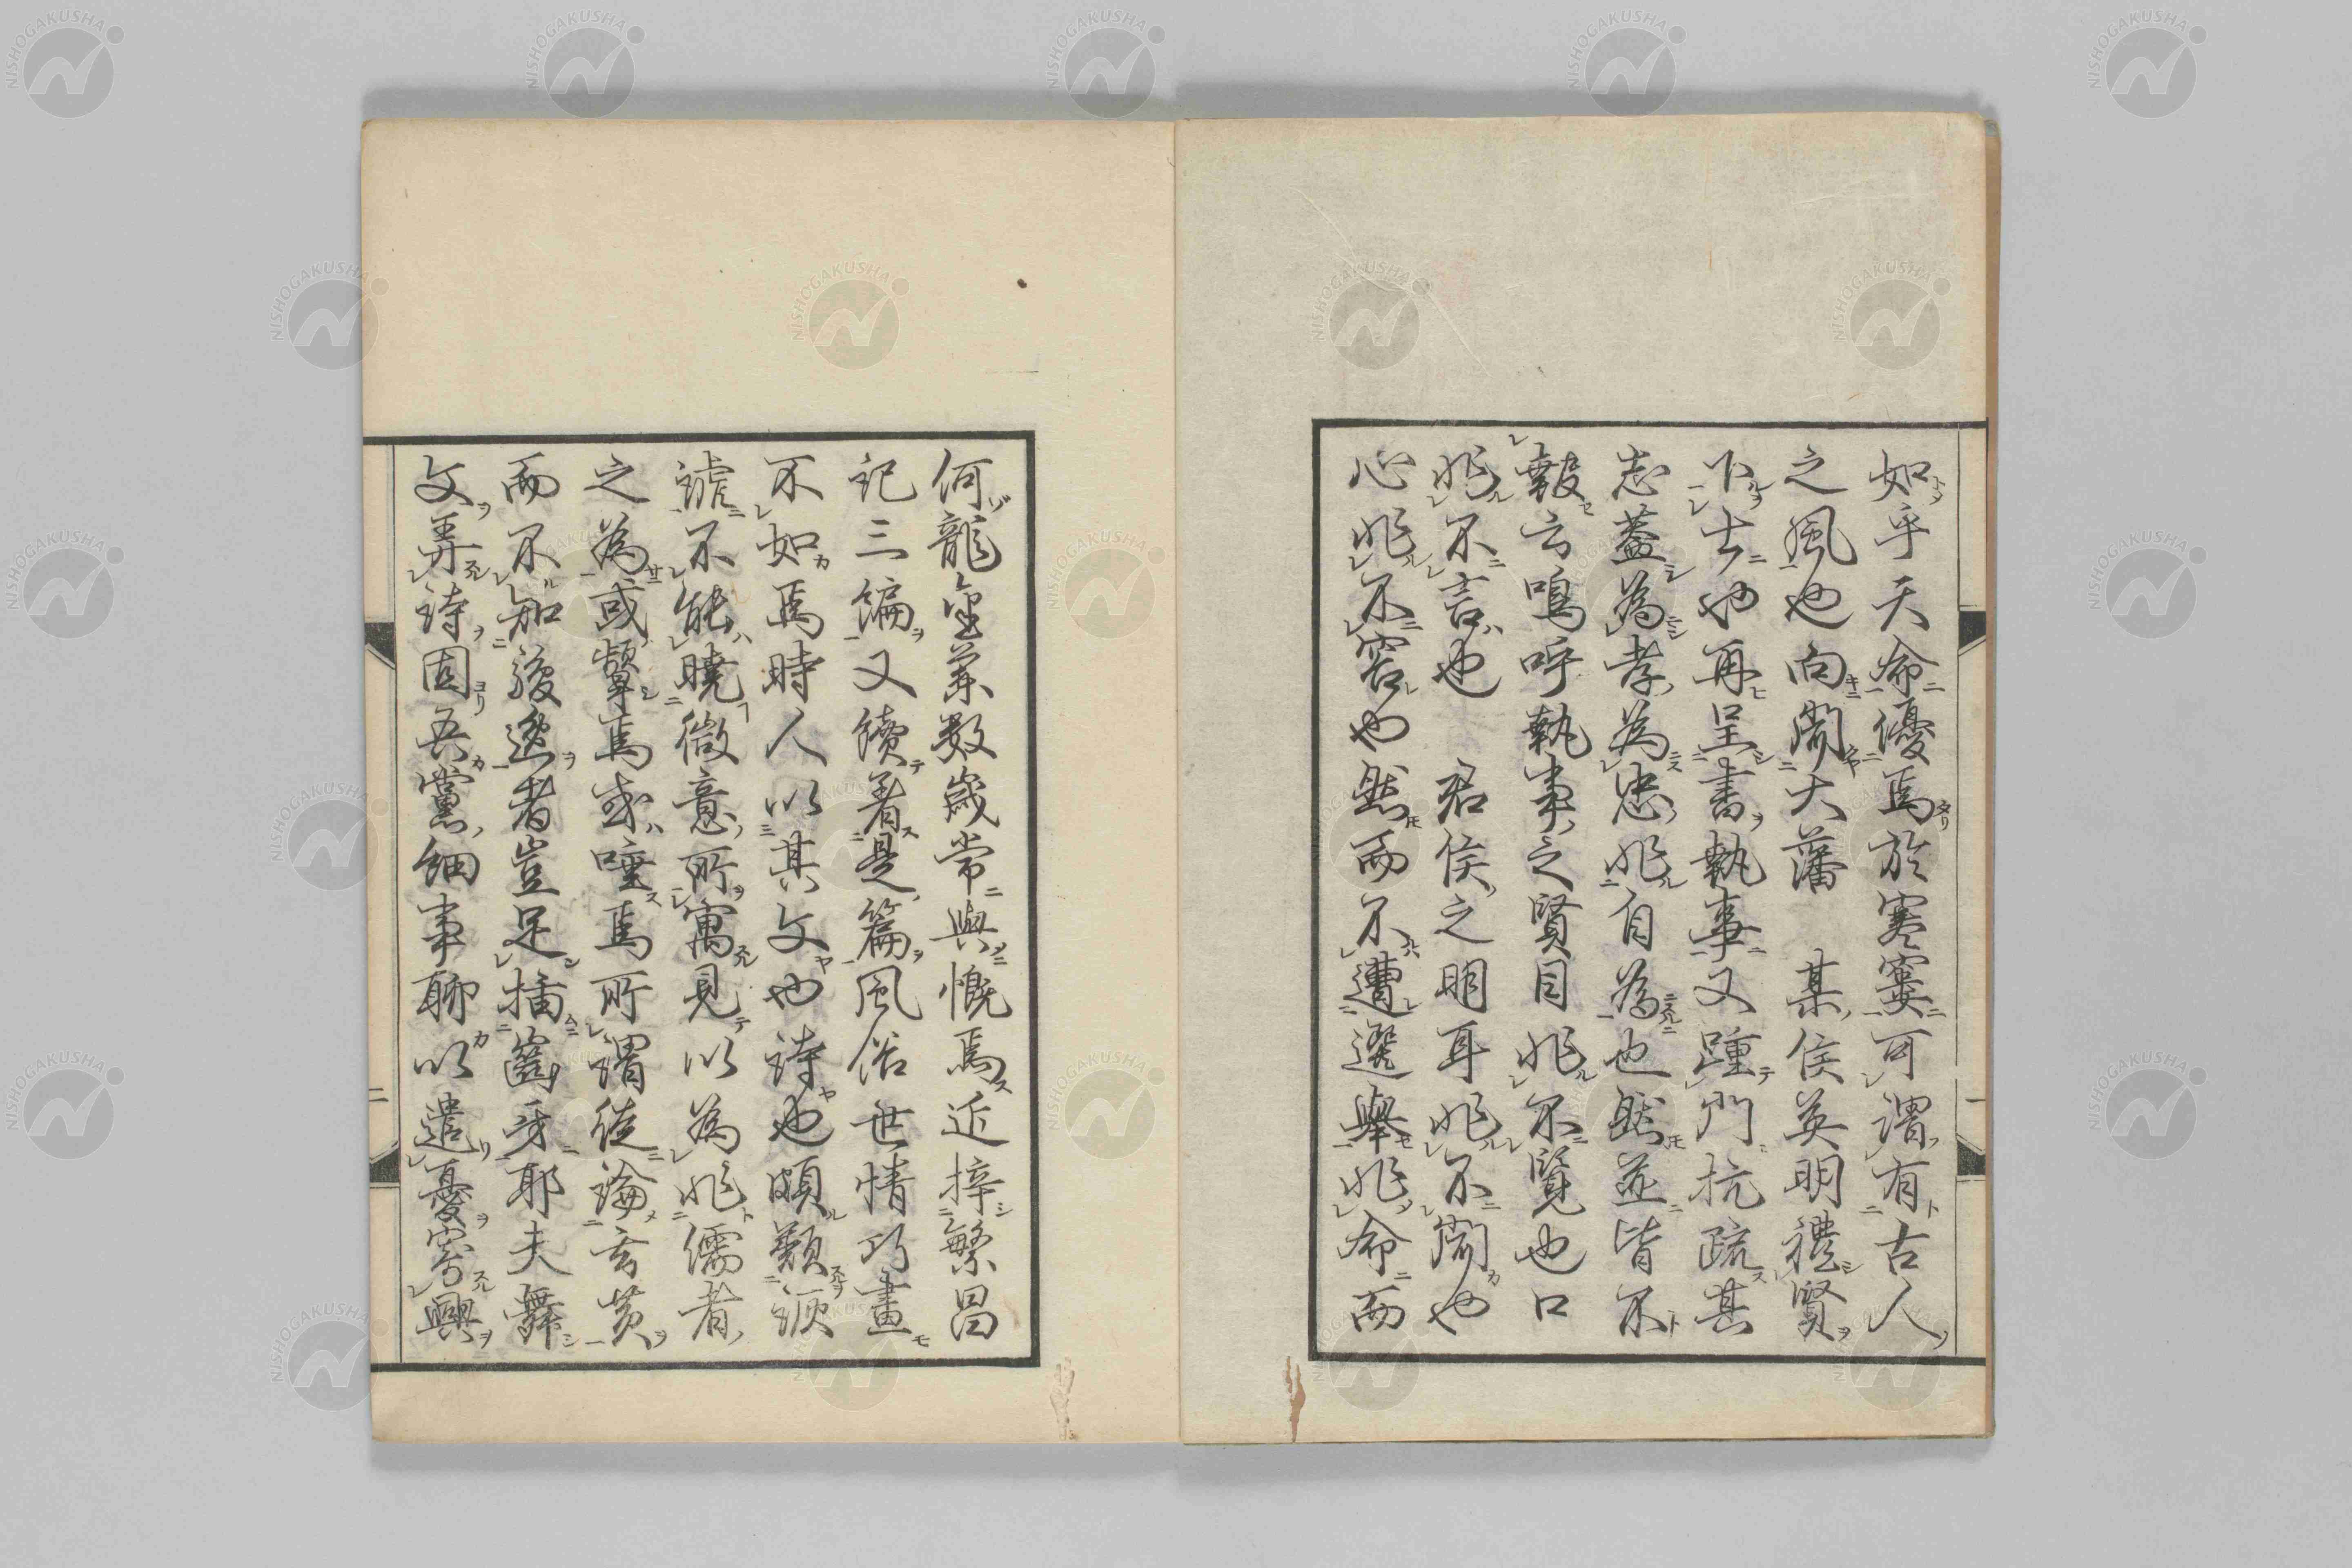 如乎天命優焉於寒窶可謂有古人
之風也向聞大藩　某侯英明禮賢
下士也再呈書執事又踵門抗疏其
志蓋為孝為忠非自為也然並皆不
報云嗚呼執事之賢目非不覽也口
非不言也　君侯之明耳非不聞也
心非不容也然而不遭選舉非命而
何龍金葉数歳常與慨焉近梓繁昌
記三編又續着是篇風俗世情巧畫
不如焉時人以其文也詩也頗類諔
謔不能曉微意所寓見以為非儒者
之為或顰焉或唾焉所謂徒論玄黄
而不知駿逸者豈足插齒牙耶夫舞
文弄詩固吾黨細事聊以遣憂寄興
一
二
NISHOGAKUSHA